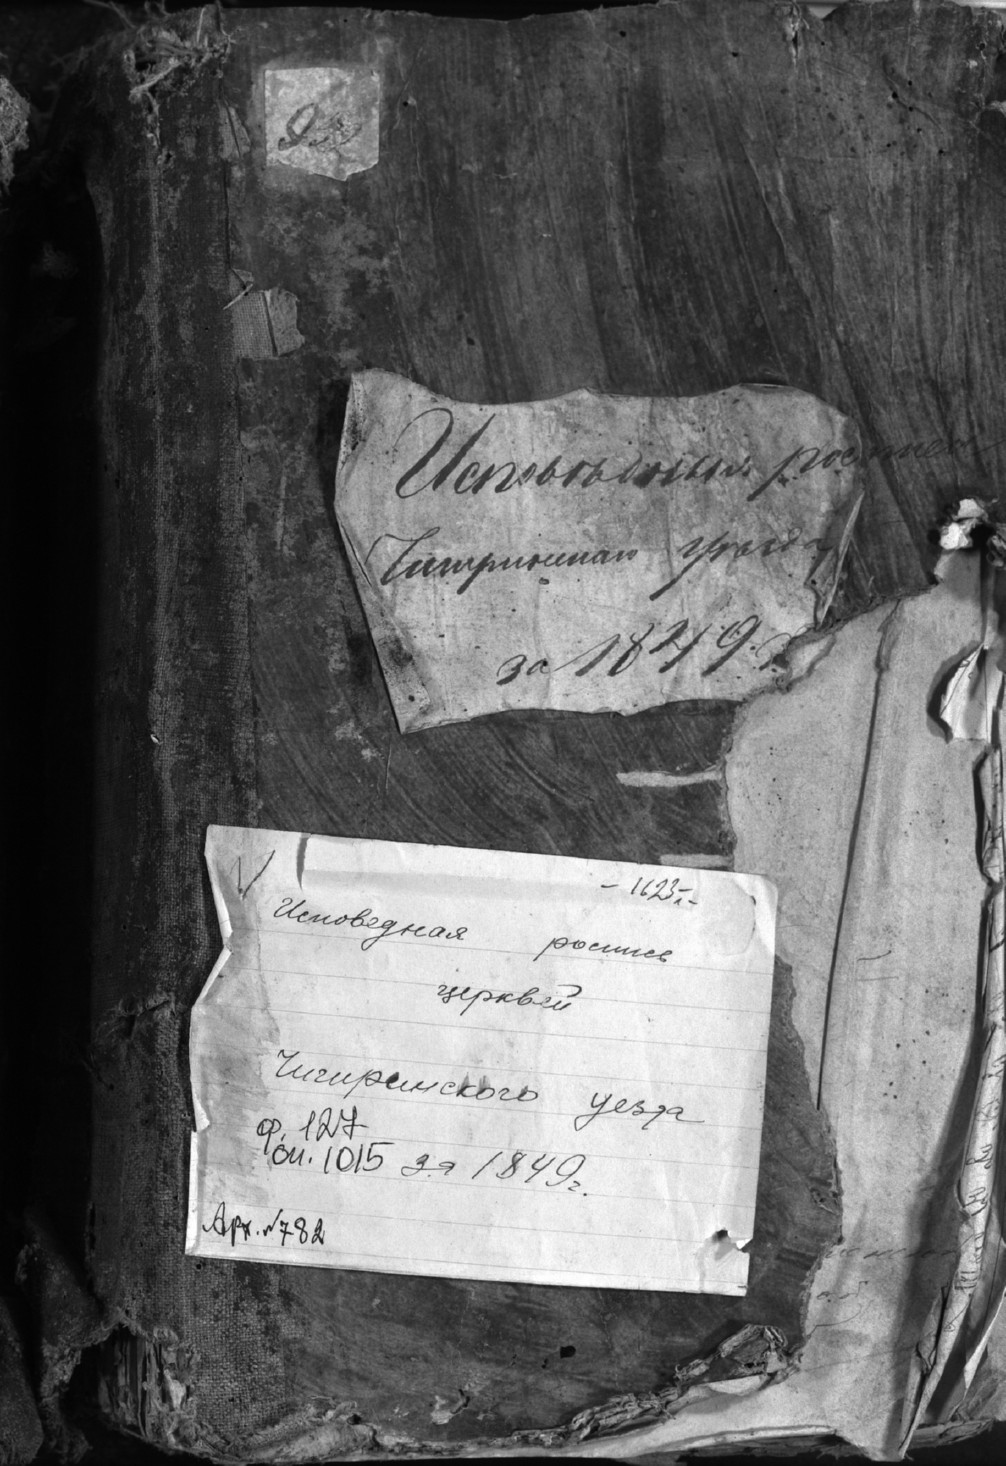 Исповѣдныя росписи
Чигиринскаго уѣзда
за 1849 г.
- 1623 л.-
Исповедная роспись
церквей
Чигиринского уезда
ф. 127
оп. 1015 за 1849 г.
Арх. № 782